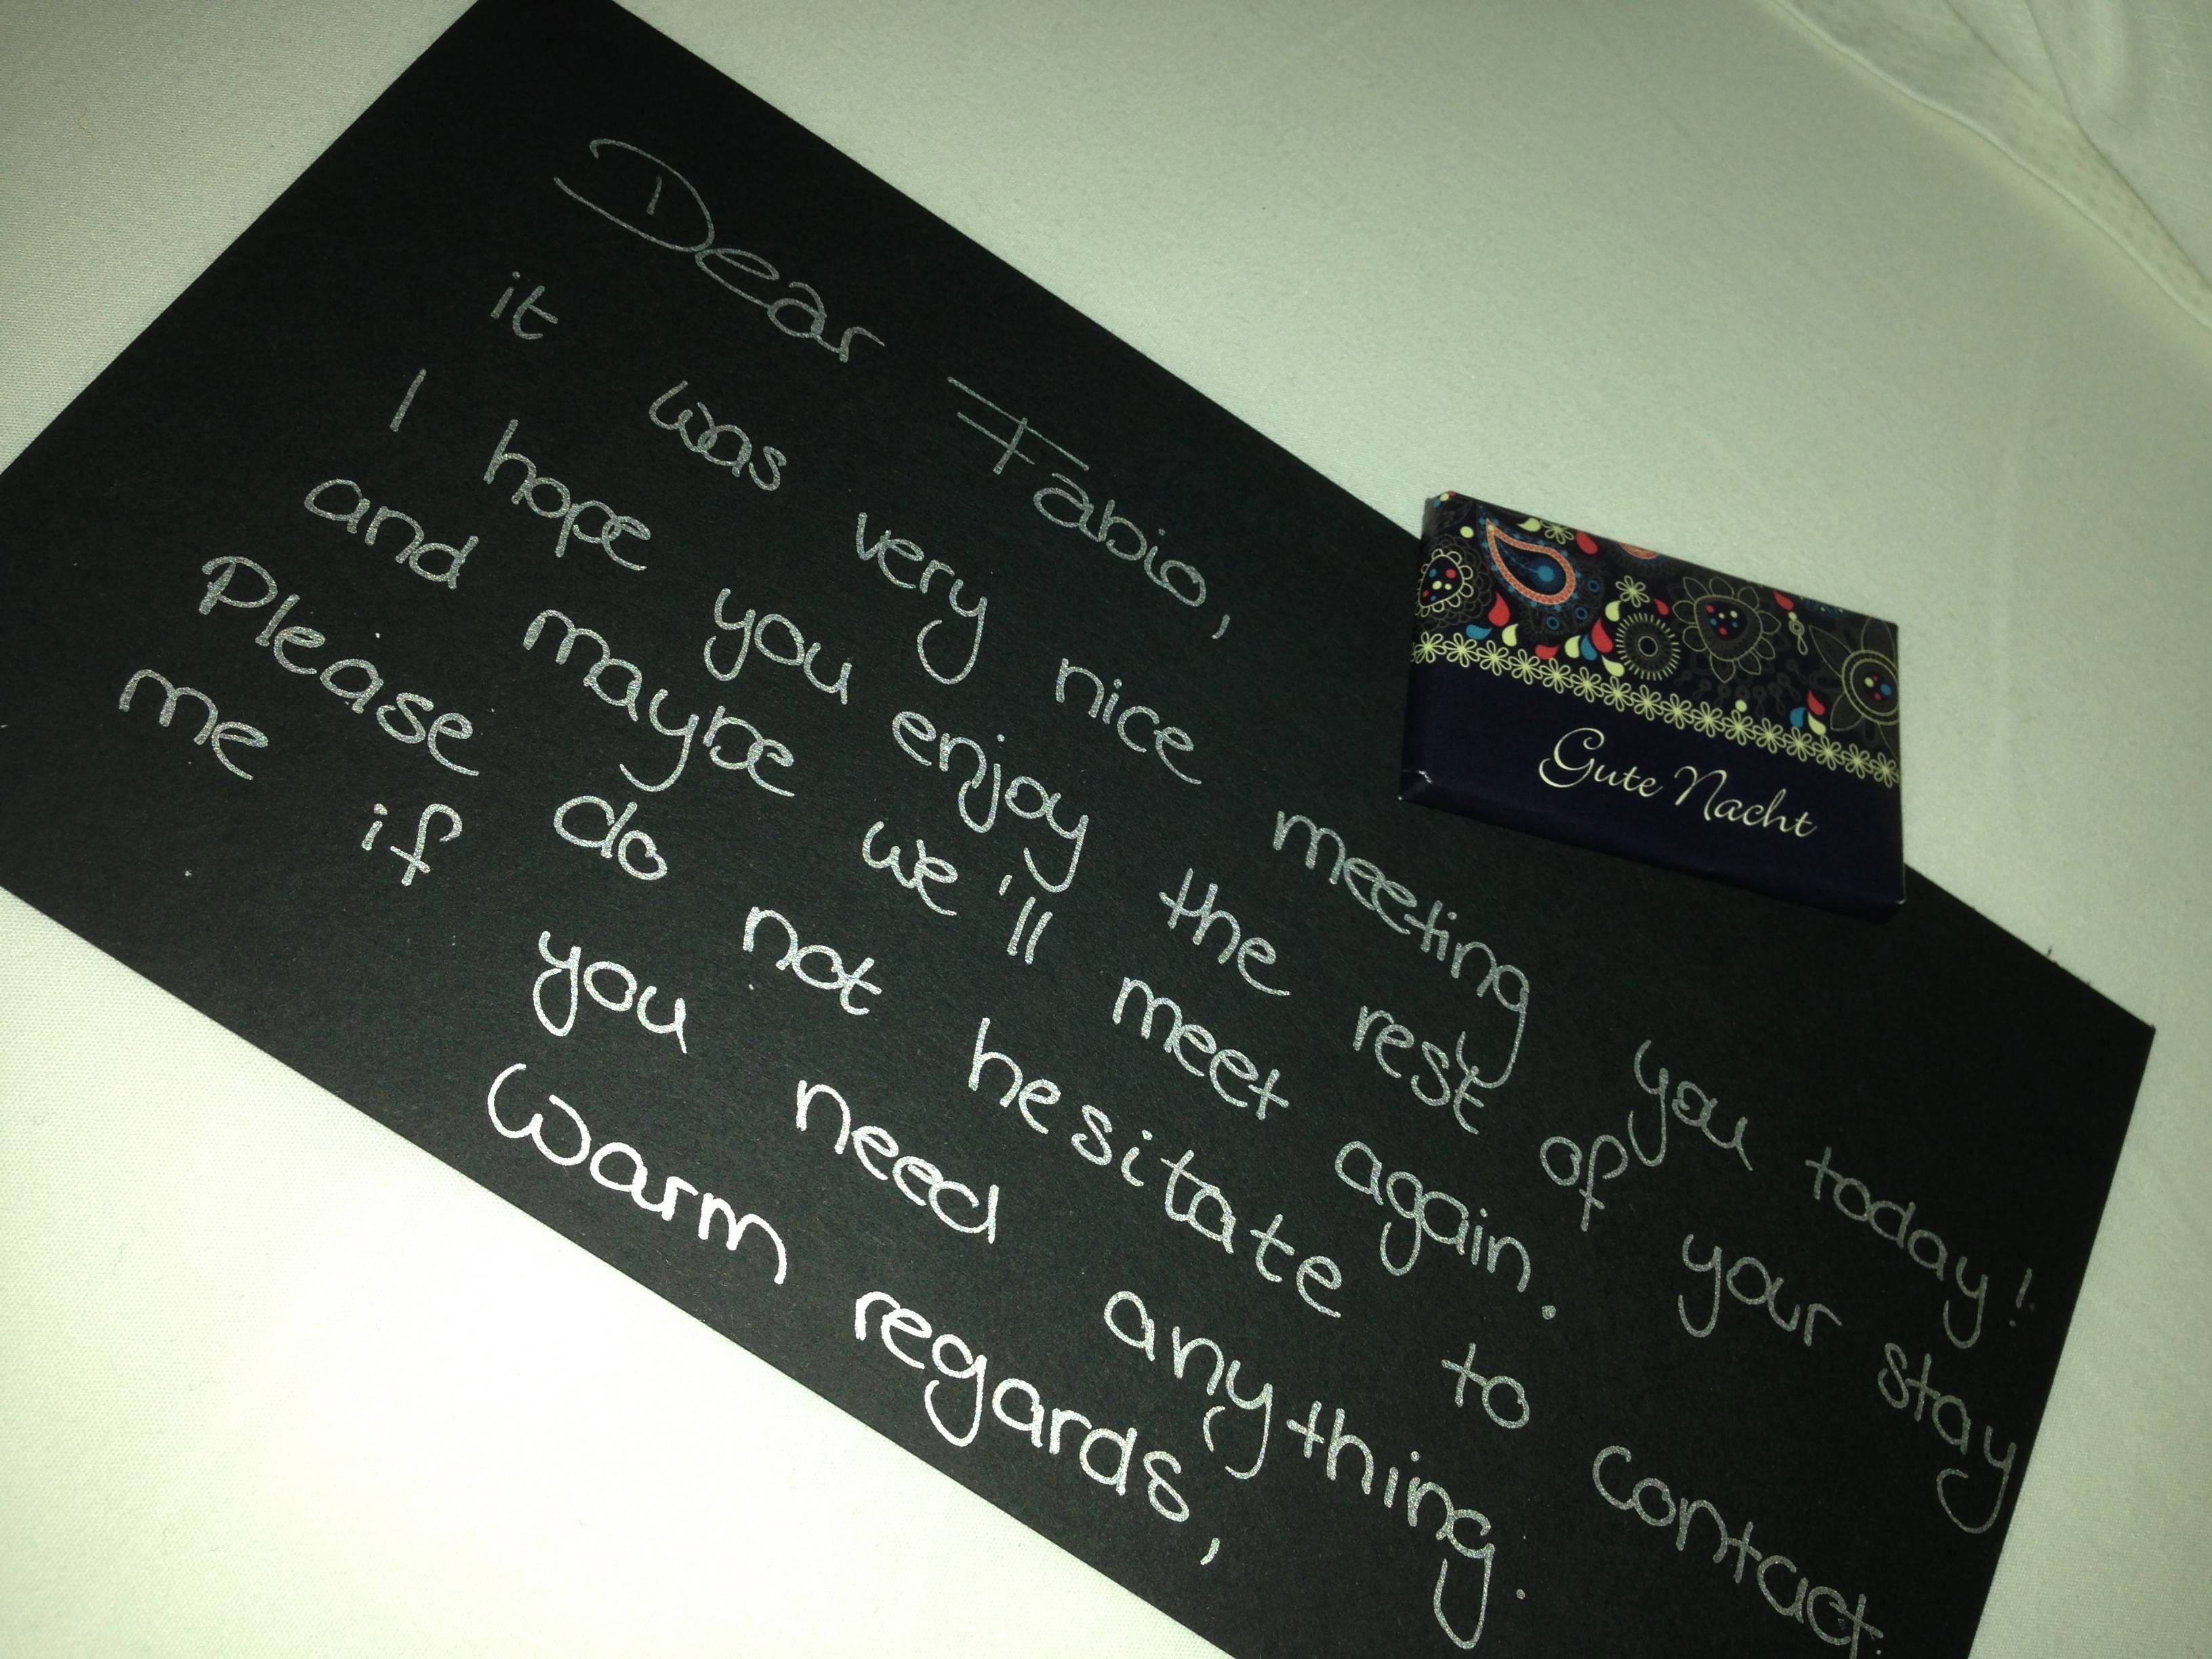 Dear Fabio,
it was very nice meeting you today!
I hope you enjoy the rest of your stay
and maybe we'll meet again.
Please do not hesitate to contact
me if you need anything.
Warm regards,
Gute Nacht